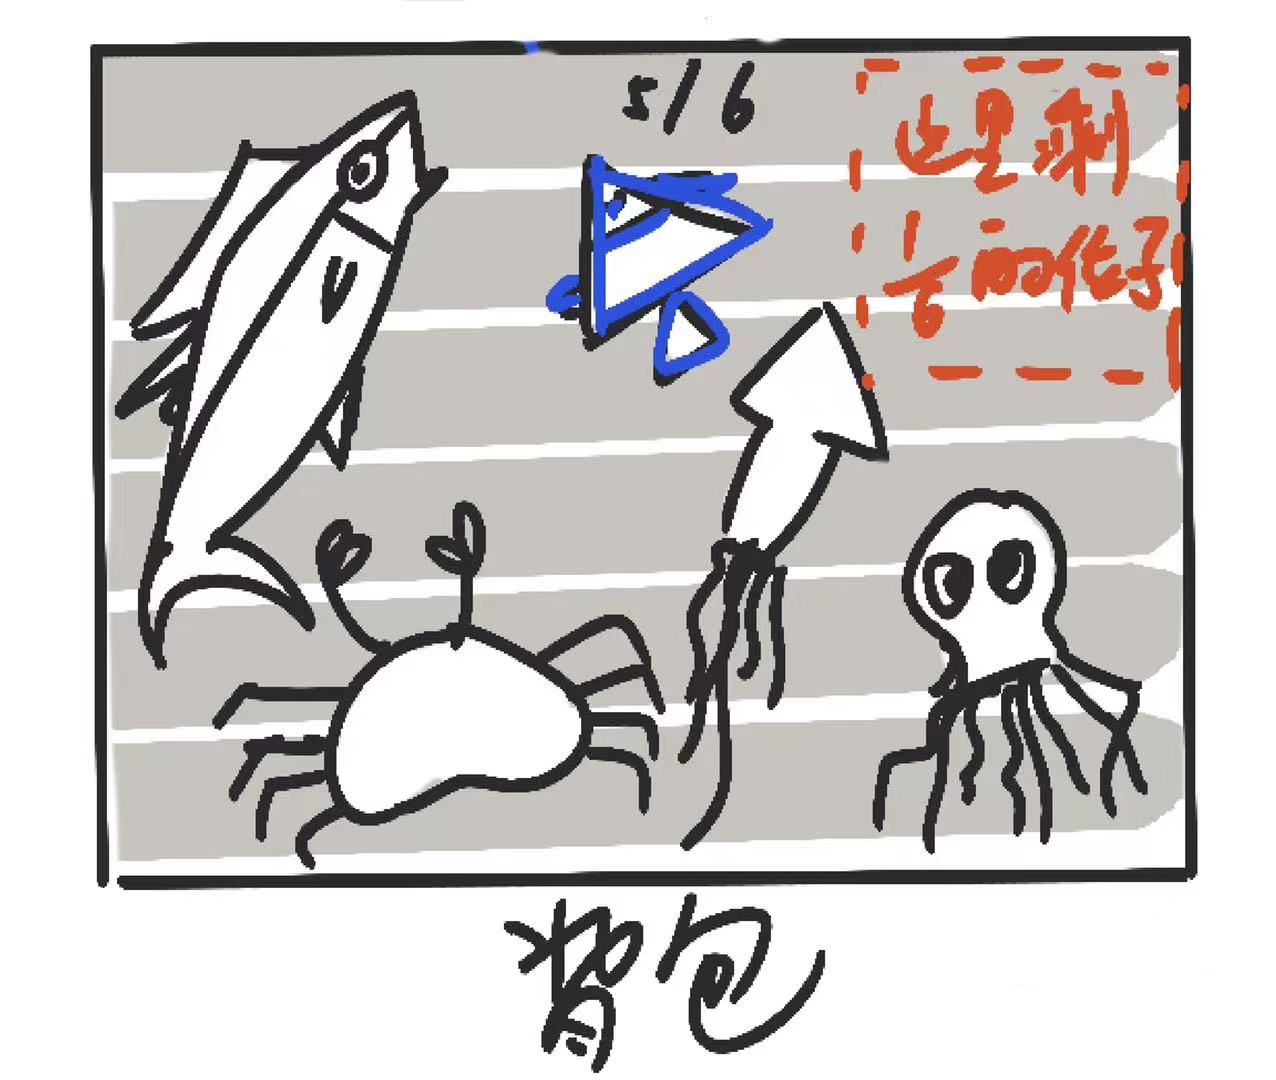 5/6
这里剩
1/6的位子
背包